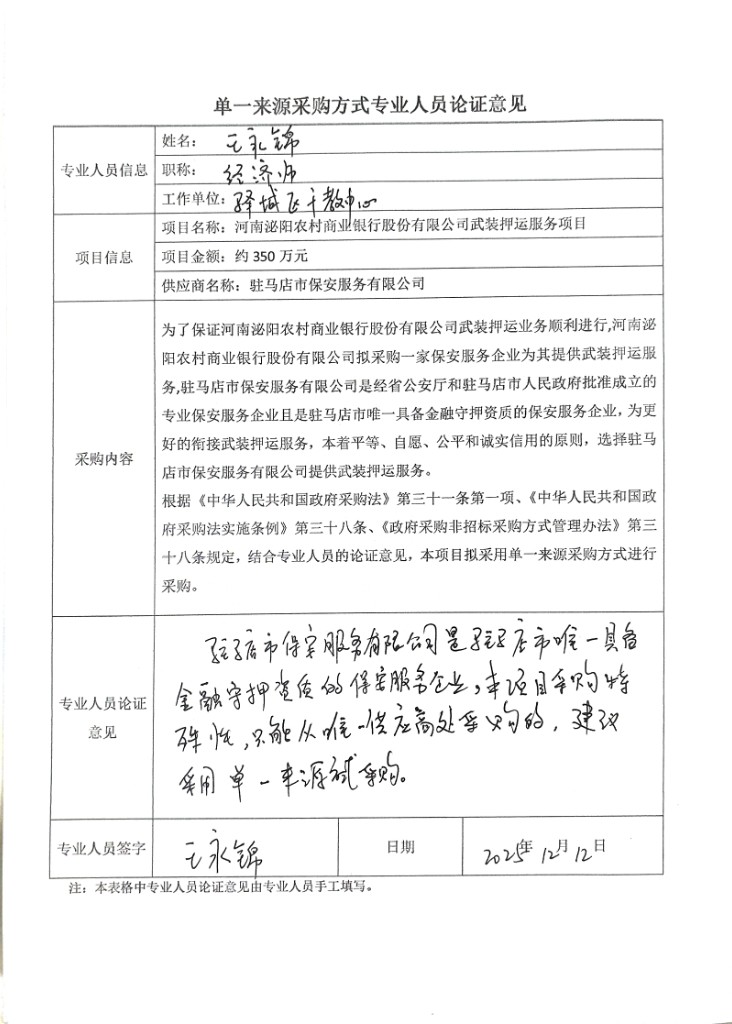 单一来源采购方式专业人员论证意见
专业人员信息
姓名：王永锦
职称：经济师
工作单位：驿城区干教中心
项目信息
项目名称：河南泌阳农村商业银行股份有限公司武装押运服务项目
项目金额：约 350 万元
供应商名称：驻马店市保安服务有限公司
采购内容
为了保证河南泌阳农村商业银行股份有限公司武装押运业务顺利进行,河南泌
阳农村商业银行股份有限公司拟采购一家保安服务企业为其提供武装押运服
务,驻马店市保安服务有限公司是经省公安厅和驻马店市人民政府批准成立的
专业保安服务企业且是驻马店市唯一具备金融守押资质的保安服务企业，为更
好的衔接武装押运服务，本着平等、自愿、公平和诚实信用的原则，选择驻马
店市保安服务有限公司提供武装押运服务。
根据《中华人民共和国政府采购法》第三十一条第一项、《中华人民共和国政
府采购法实施条例》第三十八条、《政府采购非招标采购方式管理办法》第三
十八条规定，结合专业人员的论证意见，本项目拟采用单一来源采购方式进行
采购。
专业人员论证
意见
驻马店市保安服务有限公司是驻马店市唯一具备
金融守押资质的保安服务企业，本项目采购特
殊性，只能从唯一供应商处采购的，建议
采用单一来源式采购。
专业人员签字
王永锦
日期
2025年12月12日
注：本表格中专业人员论证意见由专业人员手工填写。